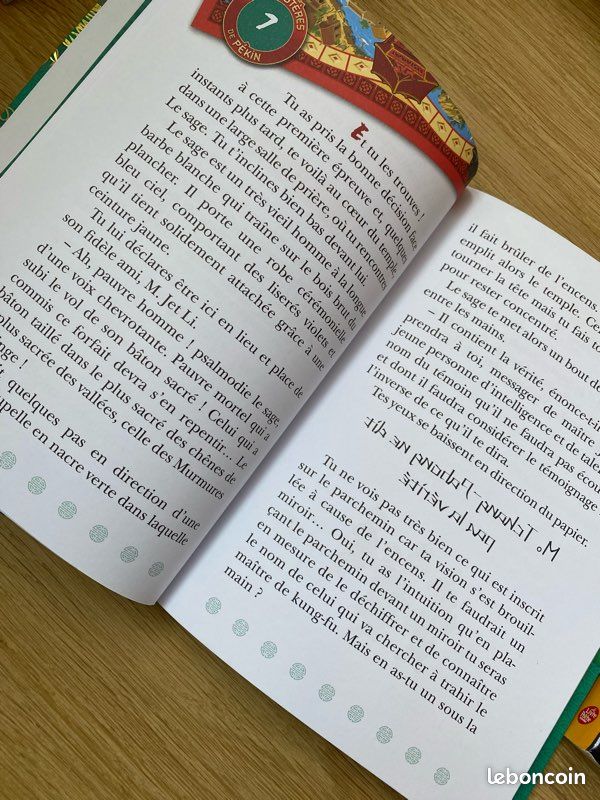 STÈRES
DE PÉKIN
1
Et tu les trouves !
Tu as pris la bonne décision face
à cette première épreuve et, quelques
instants plus tard, te voilà au cœur du temple,
dans une large salle de prière, où tu rencontres
Le sage. Tu t'inclines bien bas devant lui.
Le sage est un très vieil homme à la longue
barbe blanche qui traîne sur le bois brut du
plancher. Il porte une robe cérémonielle
bleu ciel, comportant des liserés violets et
qu'il tient solidement attachée grâce à une
ceinture jaune.
Tu lui déclares être ici en lieu et place de
son fidèle ami, M. Jet Li.
– Ah, pauvre homme ! psalmodie le sage,
d'une voix chevrotante. Pauvre mortel qui a
subi le vol de son bâton sacré ! Celui qui a
commis ce forfait devra s'en repentir... Le
bâton taillé dans le plus sacré des chênes de
plus sacrée des vallées, celle des Murmures
ge !
quelques pas en direction d'une
apelle en nacre verte dans laquelle
il fait brûler de l'encens.
emplit alors le temple. Ce
tourner la tête mais tu fais to
pour rester concentré.
Le sage te met alors un bout de
entre les mains.
– Il contient la vérité, énonce-t-i
prendra à toi, messager de maître J
jeune personne d'intelligence et de tale
nom du témoin qu'il ne faudra pas écou
et dont il faudra considérer le témoignage
l'inverse de ce qu'il te dira.
Tes yeux se baissent en direction du papier.
ne dit
pas la vérité
Tu ne vois pas très bien ce qui est inscrit
sur le parchemin car ta vision s'est brouil-
lée à cause de l'encens. Il te faudrait un
miroir... Oui, tu as l'intuition qu'en pla-
çant le parchemin devant un miroir tu seras
en mesure de le déchiffrer et de connaître
le nom de celui qui va chercher à trahir le
maître de kung-fu. Mais en as-tu un sous la
main ?
leboncoin